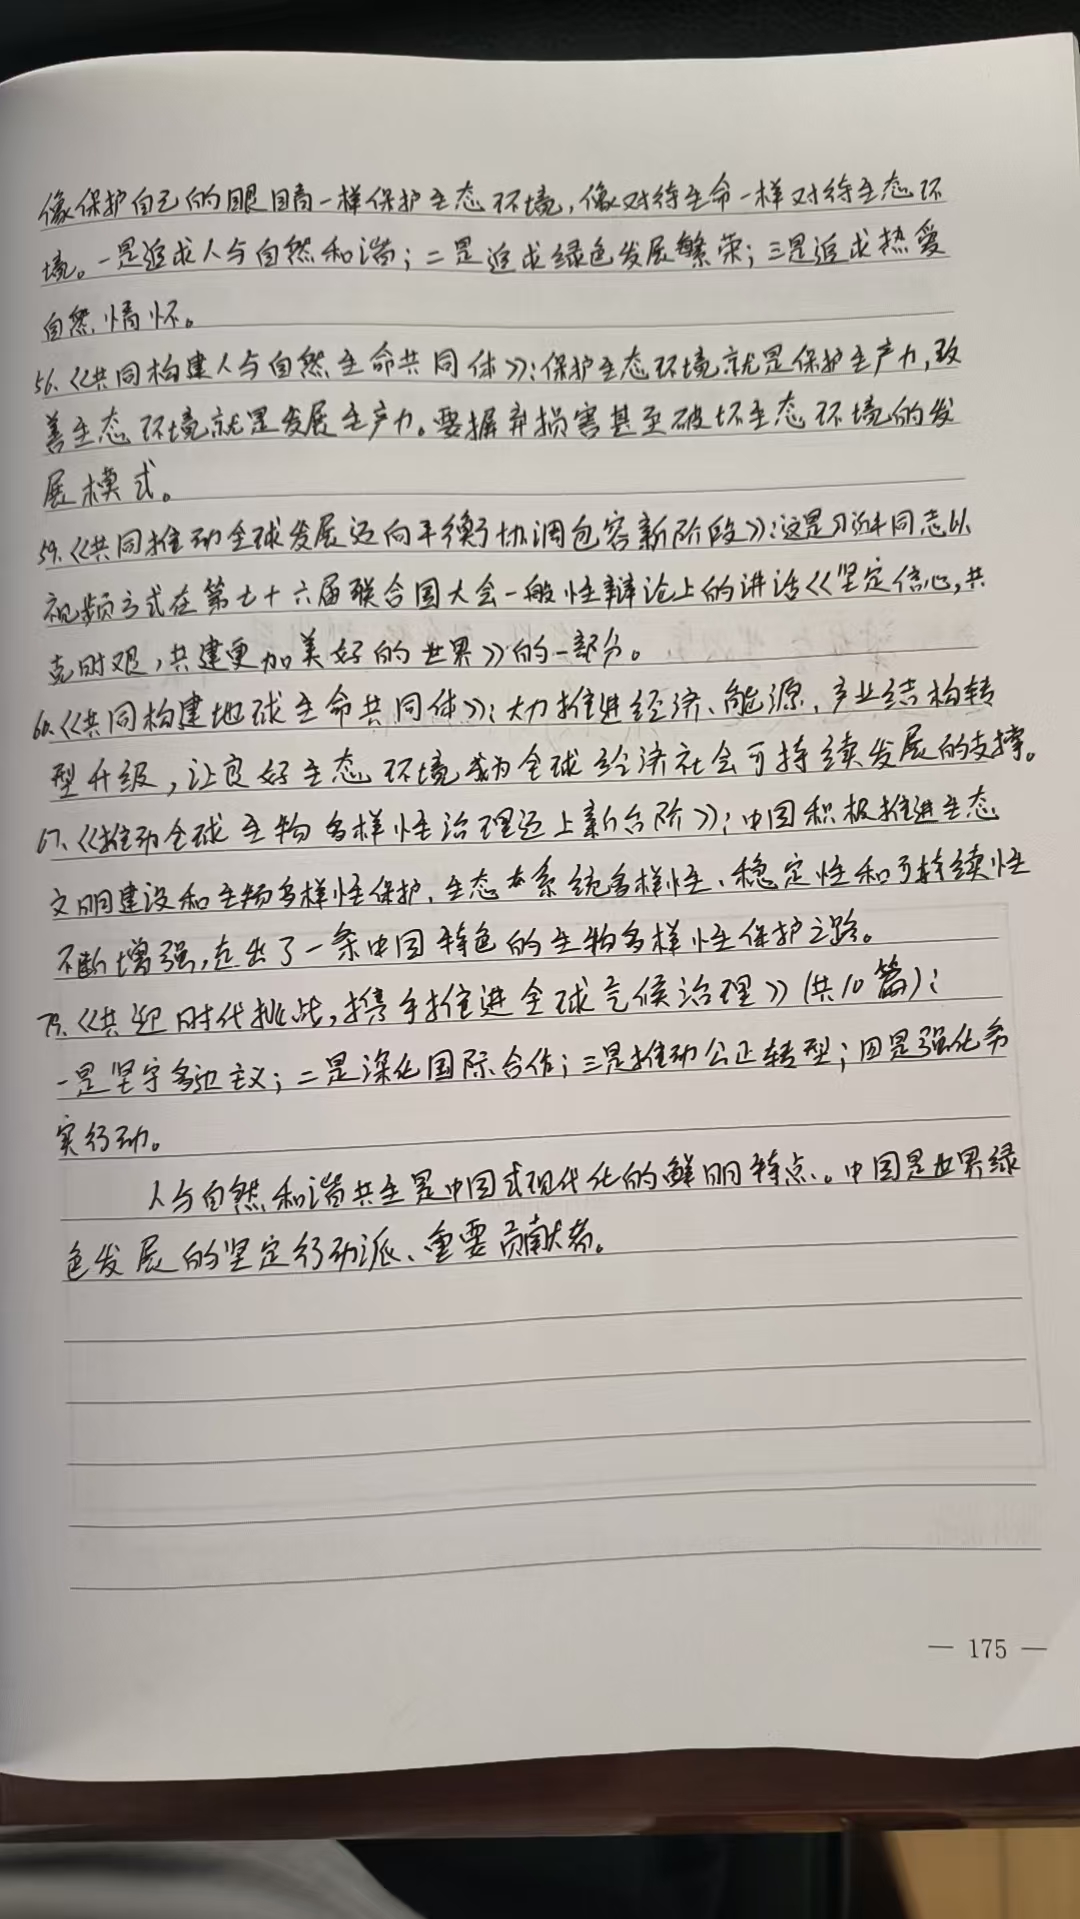 像保护自己的眼睛一样保护生态环境,像对待生命一样对待生态环
境。一是追求人与自然和谐;二是追求绿色发展繁荣;三是追求热爱
自然情怀。
56.《共同构建人与自然生命共同体》:保护生态环境就是保护生产力,改
善生态环境就是发展生产力。要摒弃损害甚至破坏生态环境的发
展模式。
59.《共同推动全球发展迈向平衡协调包容新阶段》:这是习近平同志以
视频方式在第七十六届联合国大会一般性辩论上的讲话《坚定信心,共
克时艰,共建更加美好的世界》的一部分。
60.《共同构建地球生命共同体》:大力推进经济、能源、产业结构转
型升级,让良好生态环境成为全球经济社会可持续发展的支撑。
67.《推动全球生物多样性治理迈上新台阶》:中国积极推进生态
文明建设和生物多样性保护,生态系统多样性、稳定性和可持续性
不断增强,走出了一条中国特色的生物多样性保护之路。
《共迎时代挑战,携手推进全球气候治理》(共10篇):
一是坚守多边主义;二是深化国际合作;三是推动公正转型;四是强化务
实行动。
人与自然和谐共生是中国式现代化的鲜明特点。中国是世界绿
色发展的坚定行动派、重要贡献者。
— 175 —